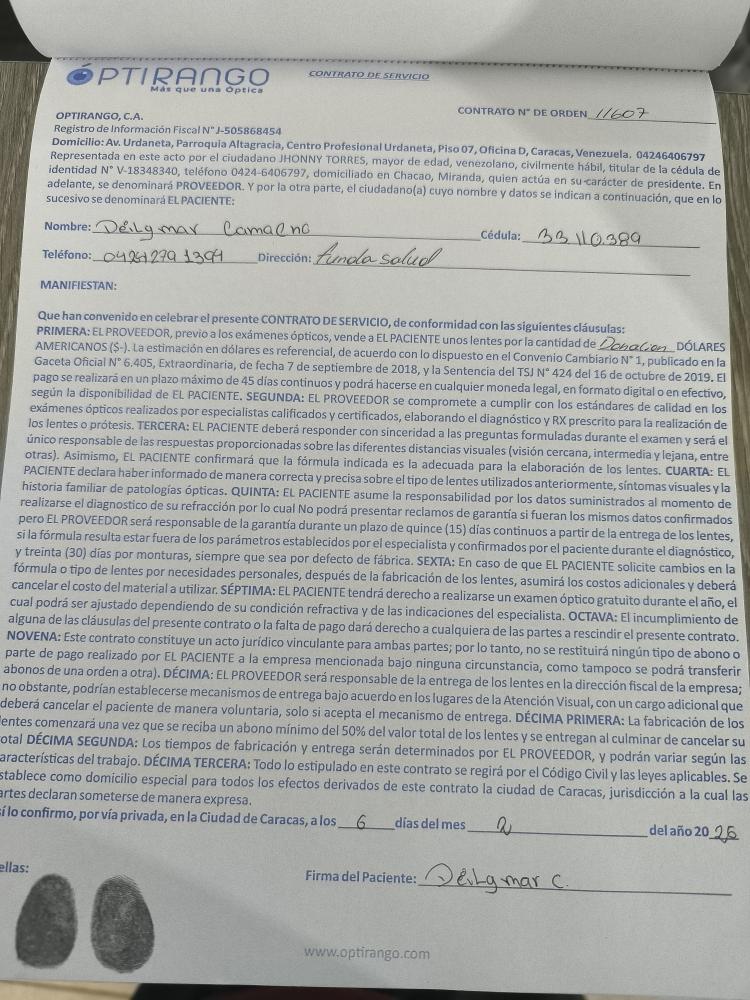 ÓPTIRANGO
Más que una Óptica
CONTRATO DE SERVICIO
CONTRATO N° DE ORDEN 11607
OPTIRANGO, C.A.
Registro de Información Fiscal N° J-505868454
Domicilio: Av. Urdaneta, Parroquia Altagracia, Centro Profesional Urdaneta, Piso 07, Oficina D, Caracas, Venezuela. 04246406797
Representada en este acto por el ciudadano JHONNY TORRES, mayor de edad, venezolano, civilmente hábil, titular de la cédula de
identidad N° V-18348340, teléfono 0424-6406797, domiciliado en Chacao, Miranda, quien actúa en su carácter de presidente. En
adelante, se denominará PROVEEDOR. Y por la otra parte, el ciudadano(a) cuyo nombre y datos se indican a continuación, que en lo
sucesivo se denominará EL PACIENTE:
Nombre: Déilgmar Cédula: 33 110.389
Teléfono: Dirección: funda salud
MANIFIESTAN:
Que han convenido en celebrar el presente CONTRATO DE SERVICIO, de conformidad con las siguientes cláusulas:
PRIMERA: EL PROVEEDOR, previo a los exámenes ópticos, vende a EL PACIENTE unos lentes por la cantidad de Donacion DÓLARES
AMERICANOS ($-). La estimación en dólares es referencial, de acuerdo con lo dispuesto en el Convenio Cambiario N° 1, publicado en la
Gaceta Oficial N° 6.405, Extraordinaria, de fecha 7 de septiembre de 2018, y la Sentencia del TSJ N° 424 del 16 de octubre de 2019. El
pago se realizará en un plazo máximo de 45 días continuos y podrá hacerse en cualquier moneda legal, en formato digital o en efectivo,
según la disponibilidad de EL PACIENTE. SEGUNDA: EL PROVEEDOR se compromete a cumplir con los estándares de calidad en los
exámenes ópticos realizados por especialistas calificados y certificados, elaborando el diagnóstico y RX prescrito para la realización de
los lentes o prótesis. TERCERA: EL PACIENTE deberá responder con sinceridad a las preguntas formuladas durante el examen y será el
único responsable de las respuestas proporcionadas sobre las diferentes distancias visuales (visión cercana, intermedia y lejana, entre
otras). Asimismo, EL PACIENTE confirmará que la fórmula indicada es la adecuada para la elaboración de los lentes. CUARTA: EL
PACIENTE declara haber informado de manera correcta y precisa sobre el tipo de lentes utilizados anteriormente, síntomas visuales y la
historia familiar de patologías ópticas. QUINTA: EL PACIENTE asume la responsabilidad por los datos suministrados al momento de
realizarse el diagnostico de su refracción por lo cual No podrá presentar reclamos de garantía si fueran los mismos datos confirmados
pero EL PROVEEDOR será responsable de la garantía durante un plazo de quince (15) días continuos a partir de la entrega de los lentes,
si la fórmula resulta estar fuera de los parámetros establecidos por el especialista y confirmados por el paciente durante el diagnóstico,
y treinta (30) días por monturas, siempre que sea por defecto de fábrica. SEXTA: En caso de que EL PACIENTE solicite cambios en la
fórmula o tipo de lentes por necesidades personales, después de la fabricación de los lentes, asumirá los costos adicionales y deberá
cancelar el costo del material a utilizar. SÉPTIMA: EL PACIENTE tendrá derecho a realizarse un examen óptico gratuito durante el año, el
cual podrá ser ajustado dependiendo de su condición refractiva y de las indicaciones del especialista. OCTAVA: El incumplimiento de
alguna de las cláusulas del presente contrato o la falta de pago dará derecho a cualquiera de las partes a rescindir el presente contrato.
NOVENA: Este contrato constituye un acto jurídico vinculante para ambas partes; por lo tanto, no se restituirá ningún tipo de abono o
parte de pago realizado por EL PACIENTE a la empresa mencionada bajo ninguna circunstancia, como tampoco se podrá transferir
abonos de una orden a otra). DÉCIMA: EL PROVEEDOR será responsable de la entrega de los lentes en la dirección fiscal de la empresa;
no obstante, podrían establecerse mecanismos de entrega bajo acuerdo en los lugares de la Atención Visual, con un cargo adicional que
deberá cancelar el paciente de manera voluntaria, solo si acepta el mecanismo de entrega. DÉCIMA PRIMERA: La fabricación de los
lentes comenzará una vez que se reciba un abono mínimo del 50% del valor total de los lentes y se entregan al culminar de cancelar su
total DÉCIMA SEGUNDA: Los tiempos de fabricación y entrega serán determinados por EL PROVEEDOR, y podrán variar según las
aracterísticas del trabajo. DÉCIMA TERCERA: Todo lo estipulado en este contrato se regirá por el Código Civil y las leyes aplicables. Se
stablece como domicilio especial para todos los efectos derivados de este contrato la ciudad de Caracas, jurisdicción a la cual las
artes declaran someterse de manera expresa.
sí lo confirmo, por vía privada, en la Ciudad de Caracas, a los 6 días del mes 2 del año 20 26
ellas:
Firma del Paciente: Déilgmar C.
www.optirango.com